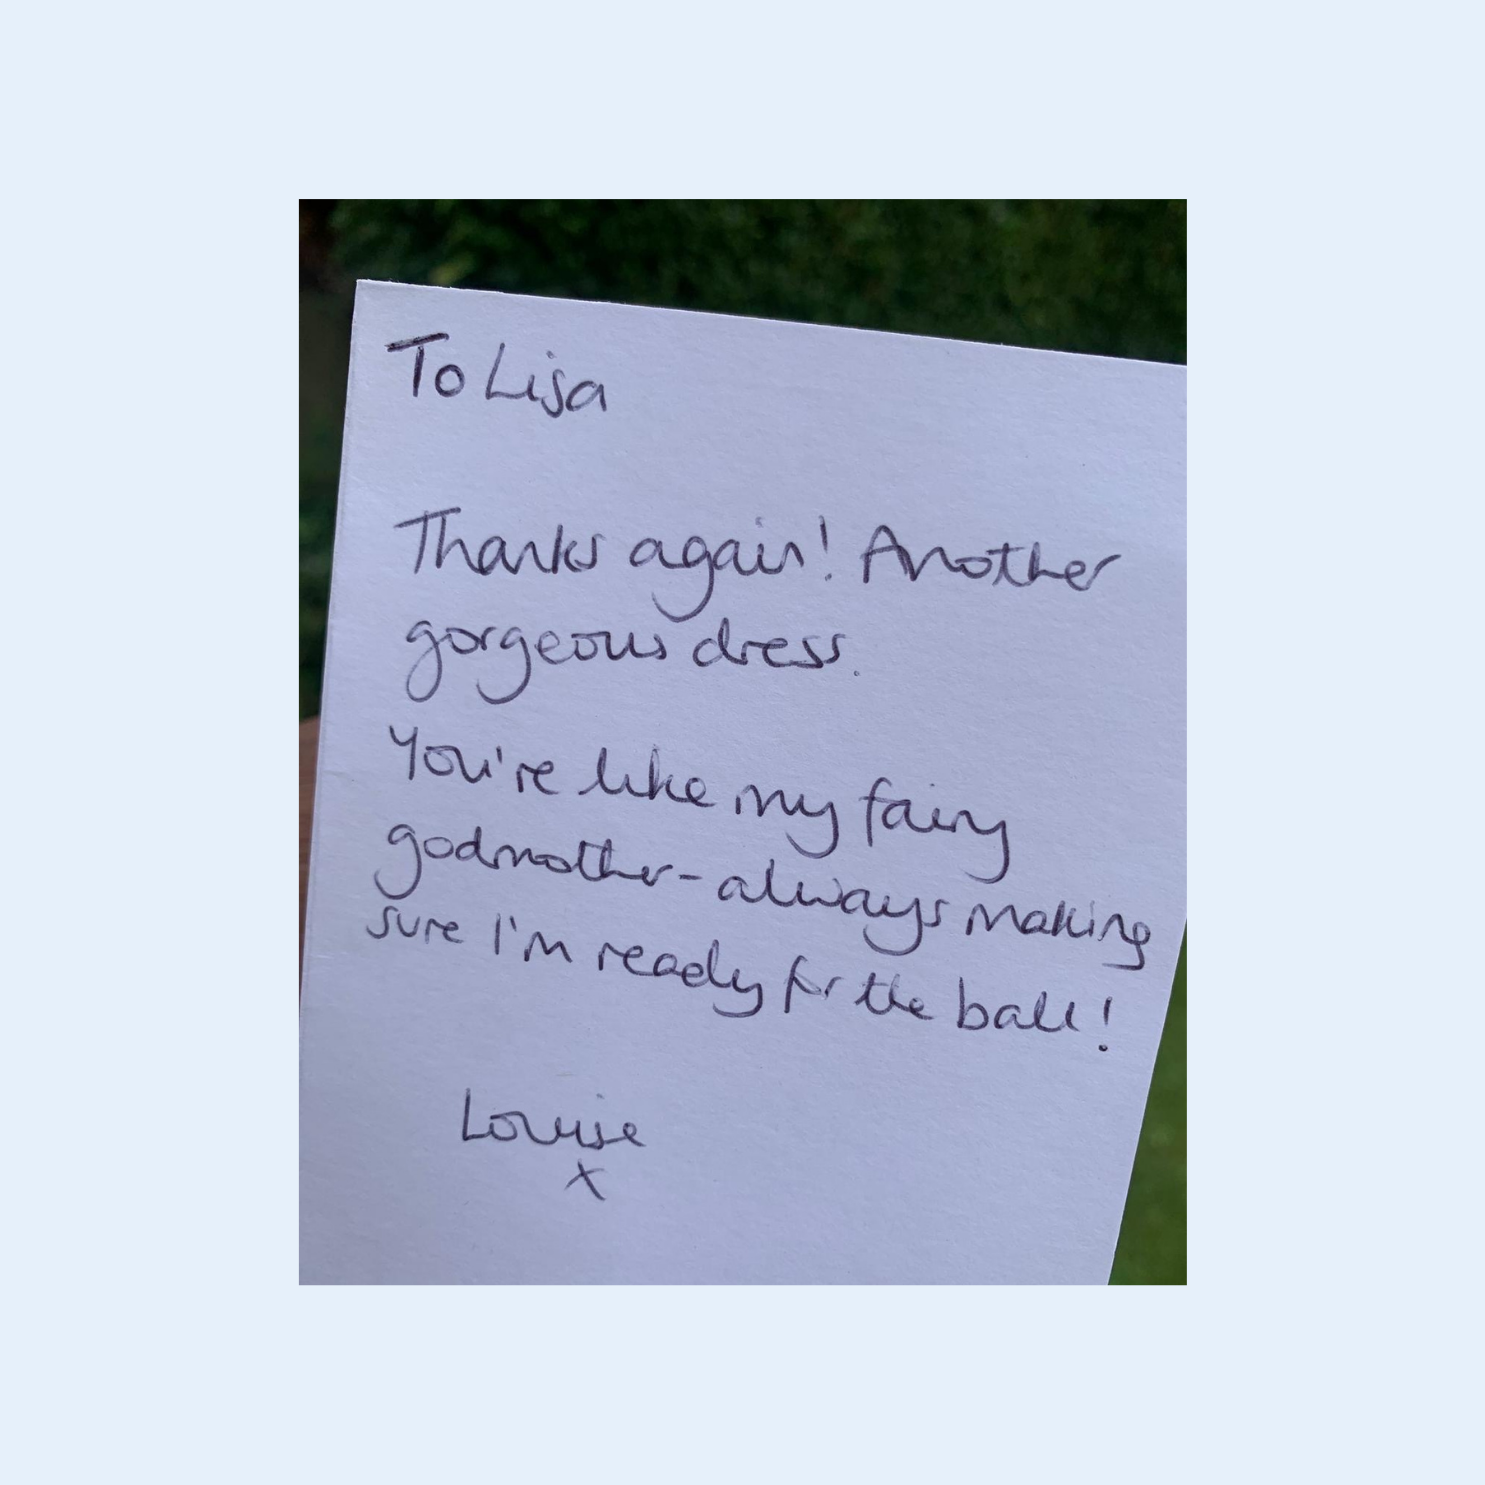 To Lisa
Thanks again! Another
gorgeous dress.
You're like my fairy
godmother - always making
sure I'm ready for the ball!
Louise
x